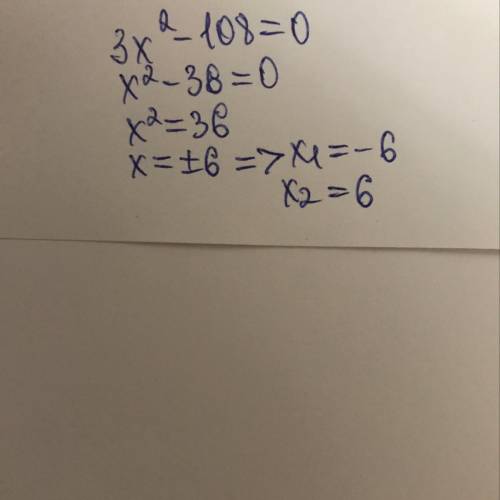 3x² - 108 = 0
x² - 38 = 0
x² = 36
x = ±6 => x₁ = -6
x₂ = 6